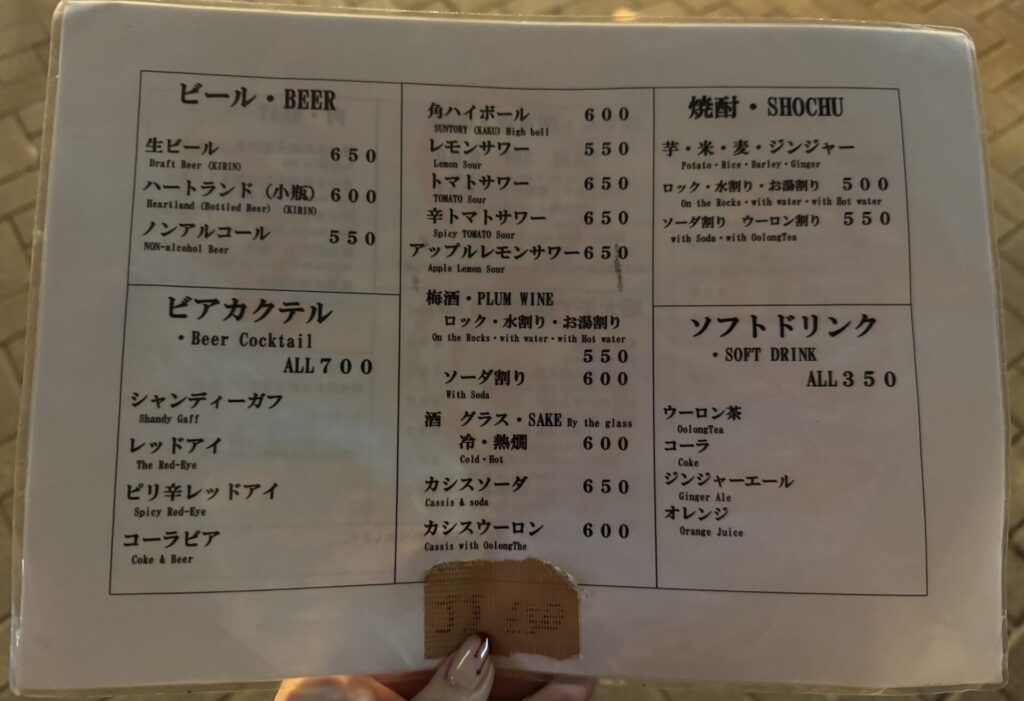 ビール・BEER
生ビール 650
Draft Beer (KIRIN)
ハートランド（小瓶） 600
Heartland (Bottled Beer) (KIRIN)
ノンアルコール 550
NON-alcohol Beer
ビアカクテル
・Beer Cocktail
ALL700
シャンディーガフ
Shandy Gaff
レッドアイ
The Red-Eye
ピリ辛レッドアイ
Spicy Red-Eye
コーラビア
Coke & Beer
角ハイボール 600
SUNTORY (KAKU) High boll
レモンサワー 550
Lemon Sour
トマトサワー 650
TOMATO Sour
辛トマトサワー 650
Spicy TOMATO Sour
アップルレモンサワー 650
Apple Lemon Sour
梅酒・PLUM WINE
ロック・水割り・お湯割り
On the Rocks・with water・with Hot water
550
ソーダ割り 600
With Soda
酒 グラス・SAKE By the glass
冷・熱燗 600
Cold・Hot
カシスソーダ 650
Cassis & soda
カシスウーロン 600
Cassis with OolongThe
焼酎・SHOCHU
芋・米・麦・ジンジャー
Potato・Rice・Barley・Ginger
ロック・水割り・お湯割り 500
On the Rocks・with water・with Hot water
ソーダ割り ウーロン割り 550
with Soda・with OolongTea
ソフトドリンク
・SOFT DRINK
ALL350
ウーロン茶
OolongTea
コーラ
Coke
ジンジャーエール
Ginger Ale
オレンジ
Orange Juice